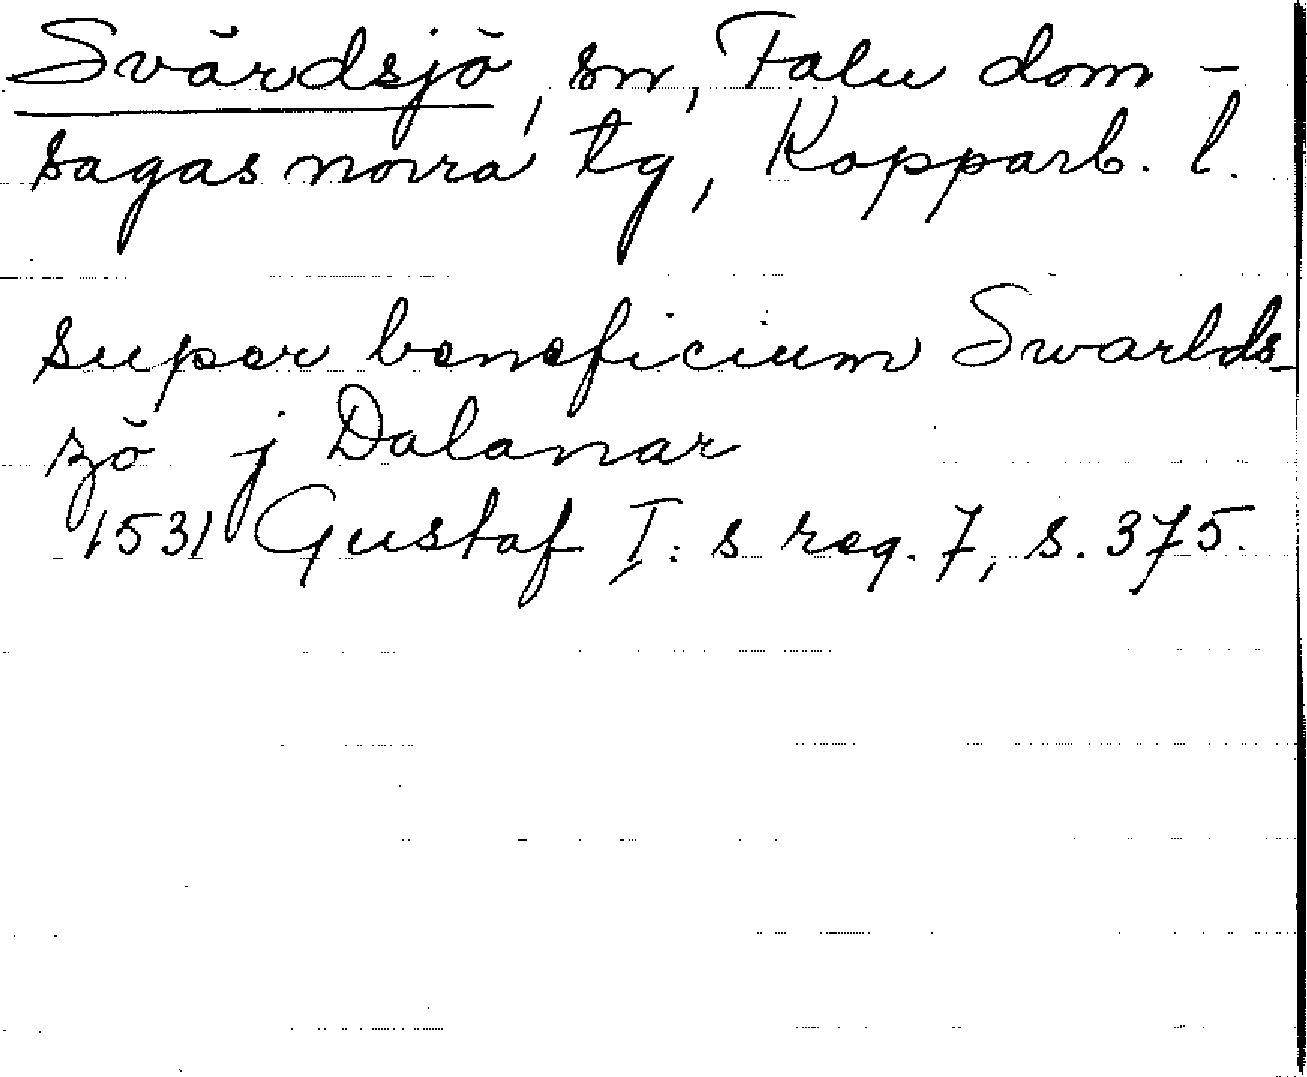 Svärdsjö, sn, Falu dom-
sagas norra tg, Kopparb. l.
super beneficium Swarlds-
zö j Dalanar
1531 Gustaf I:s reg. 7, s. 375.